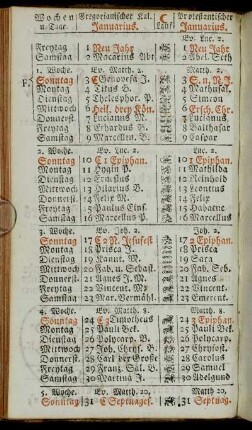 Wochen Gregorianischer Cal. Protestantischer
u. Tage. Januarius. Lauf. Januarius.
Ev. Luc. 2.
Freytag 1 Neu Jahr 1 Neu Jahr
Samstag 2 Macarius Abt 2 Abel. Seth
1. Woche. Ev. Matth. 2. Matth. 2.
Sonntag 3 C Genovefa J. 3
Montag 4 Titus B. 4 Methusal.
Dienstag 5 Thelesphor. P. 5 Simeon
Mittwoch 6 Heil. drey Kön. 6
Donnerst. 7 Lucianus M. 7
Freytag 8 Erhardus B. 8 Balthasar
Samstag 9 Marcellinus B. 9
2. Woche. Ev. Luc. 2. Ev. Luc. 2.
Sonntag 10 C 1 Epiphan. 10 1 Epiphan.
Montag 11 Hygin P. 11 Mathilda
Dienstag 12 12 Reinhold
Mittwoch 13 Hilarius B. 13 Leontius
Donnerst. 14 Felix M. 14 Felix
Freytag 15 Paulus Einf. 15
Samstag 16 Marcellus P. 16 Marcellus
3. Woche. Ev. Joh. 2. Joh. 2.
Sonntag 17 C 2 Jesusfest 17 2 Epiphan.
Montag 18 Prisca J. 18 Prisca
Dienstag 19 Kanut. M. 19 Sara
Mittwoch 20 Fab. u. Sebast. 20 Fab. Seb.
Donnerst. 21 Agnes J. M. 21 Agnes
Freytag 22 Vincent. M. 22 Vincent.
Samstag 23 Mar. Vermähl. 23 Emerent.
4. Woche. Ev. Matth. 8. Matth. 8.
Sonntag 24 C 3 Timotheus 24 3 Epiphan.
Montag 25 Pauli Bek. 25 Pauli Bek.
Dienstag 26 Polycarp. B. 26 Polycarp.
Mittwoch 27 Joh. Chrys. B. 27 Chrysost.
Donnerst. 28 Carl der Große 28 Carolus
Freytag 29 Franz. Sal. B. 29 Samuel
Samstag 30 Martina J. 30 Adelgund
5. Woche. Ev. Matth. 20. Matth. 20.
Sonntag 31 C Septuages. 31 Septuag.